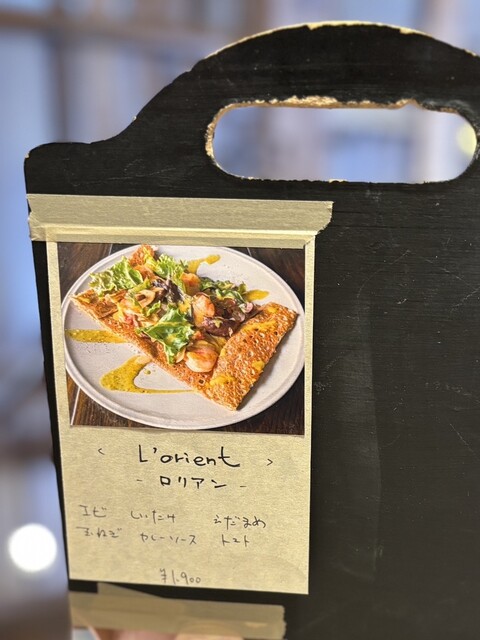 < L'orient >
- ロリアン -
エビ しいたけ えだまめ
玉ねぎ カレーソース トマト
¥1,900